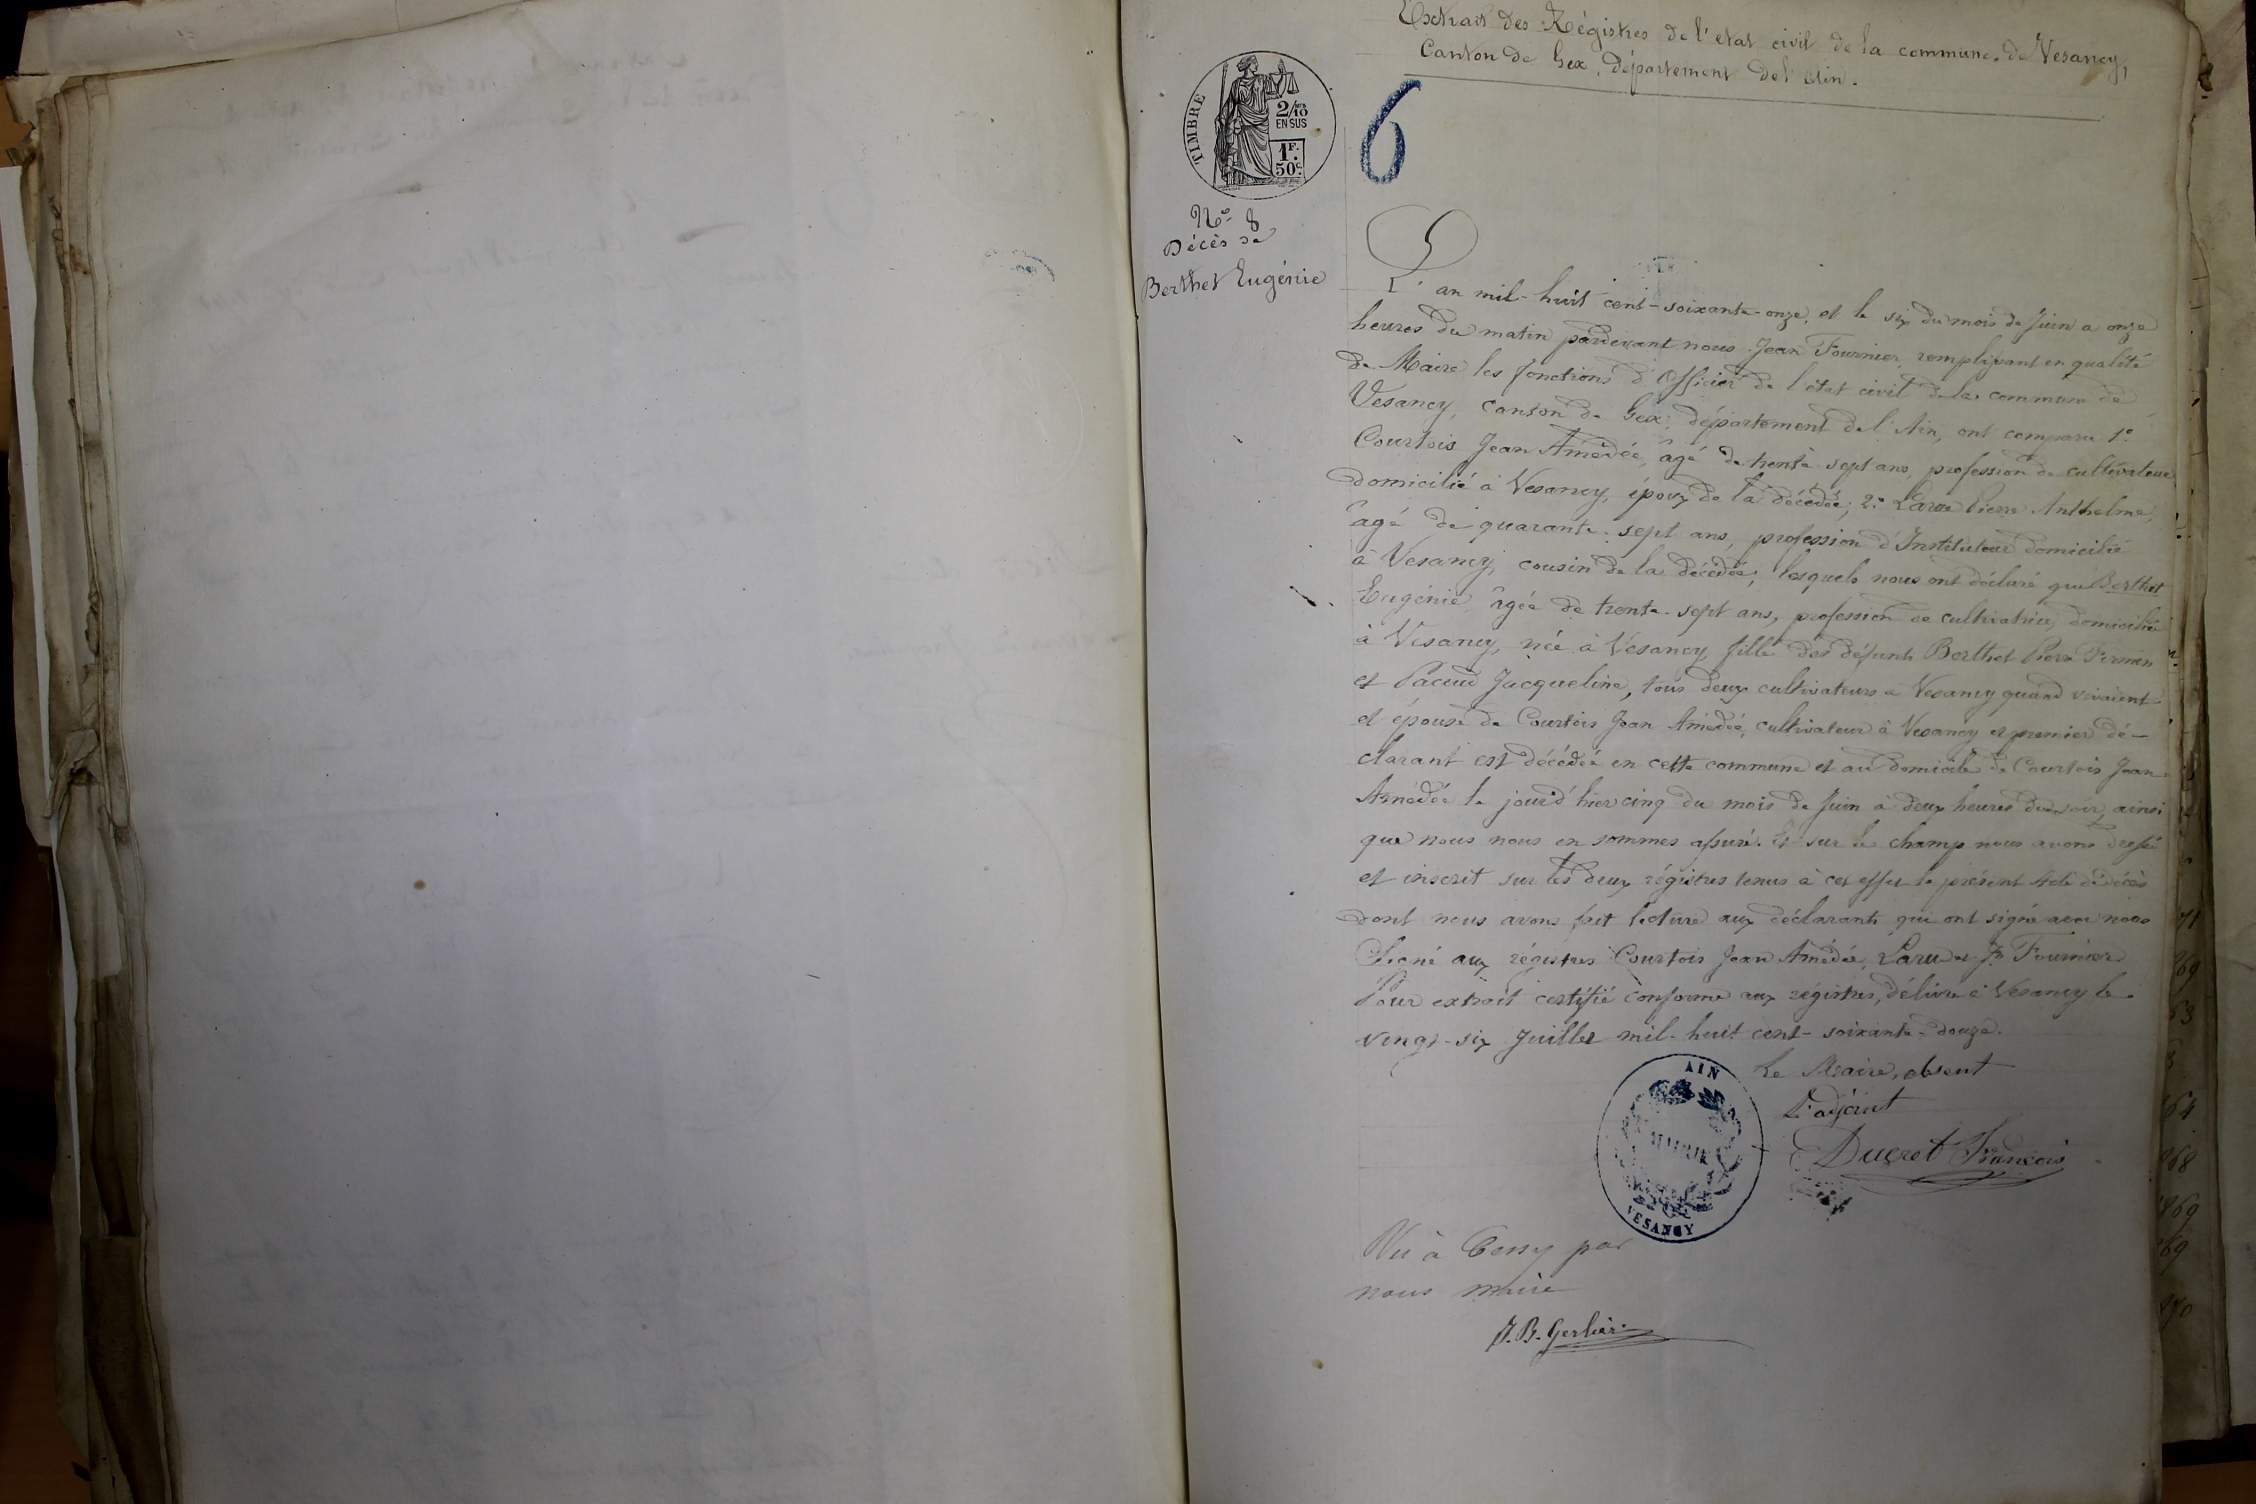 Extrait des Régistres de l'etat civil de la commune de Vesancy,
Canton de Gex, département de l'Ain.
TIMBRE
2/10
EN SUS
1F.
50c.
6
N° 8
Décès de
Berthet Eugénie
L'an mil-huit cent-soixante-onze, et le six du mois de Juin a onze
heures du matin pardevant nous Jean Fournier, remplissant en qualité
de Maire les fonctions d'Officier de l'état civil de la commune de
Vesancy, canton de Gex, département de l'Ain, ont comparu 1°
Courtois Jean Amédée, âgé de trente-sept ans, profession de cultivateur
domicilié à Vesancy, époux de la décédée; 2° Larue Pierre Anthelme,
âgé de quarante-sept ans, profession d'Instituteur domicilié
à Vesancy, cousin de la décédée; lesquels nous ont déclaré que Berthet
Eugénie âgée de trente-sept ans, profession de cultivatrice, domiciliée
à Vesancy, née à Vesancy, fille des défunts Berthet Pierre Firmin
et Pacud Jacqueline, tous deux cultivateurs à Vesancy quand vivaient
et épouse de Courtois Jean Amédée, cultivateur à Vesancy et premier dé-
clarant est décédée en cette commune et au domicile de Courtois Jean
Amédée le jour d'hier cinq du mois de Juin à deux heures du soir, ainsi
que nous nous en sommes assuré. Et sur le champ nous avons dressé
et inscrit sur les deux régistres tenus à cet effet le présent Acte de décès
dont nous avons fait lecture aux déclarants qui ont signé avec nous
Signé aux régistres Courtois Jean Amédée, Larue et Jn Fournier
Pour extrait certifié conforme aux régistres, délivré à Vesancy le
vingt-six Juillet mil-huit cent-soixante-douze.
Le Maire, absent
L'adjoint
Ducret François
AIN
MAIRIE
VESANCY
Vu à Cessy par
nous maire
J.B. Gerlier